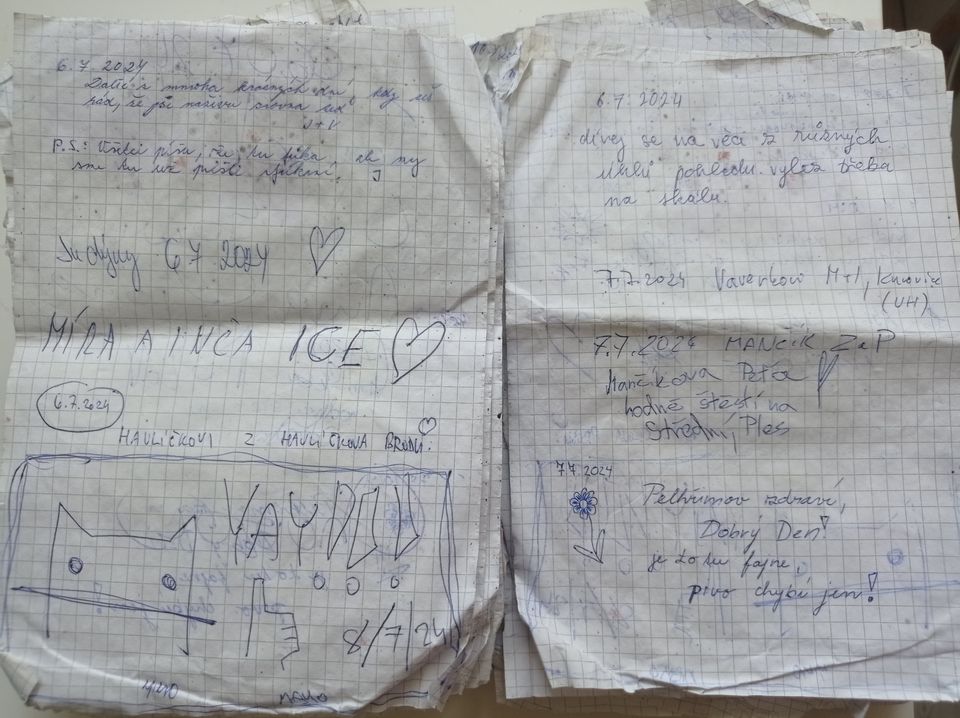 6.7. 2024
Další z mnoha krásných dní, kdy seš
rád, že jsi
J+V
P.S.: Všichni píšou, že tu fouká, ale my
sme tu
Judýny 6 7 2024
MÍRA A INČA ICE
6.7.2024
HAVLÍČKOVI Z HAVLÍČKOVA BRODU.
8/7/24
6.7. 2024
dívej se na věci z různých
úhlů pohledu. vylez třeba
na skálu.
7.7.2024 Vaverkovi M+I, Kunovice
(UH)
7.7.2024 MANČÍK Z a P
Mančíkova Peťa
hodně štěstí na
Střední, Ples
7.7.2024
Pelhřimov zdraví,
Dobrý Den!
je to tu fajne,
pivo chybí jen!